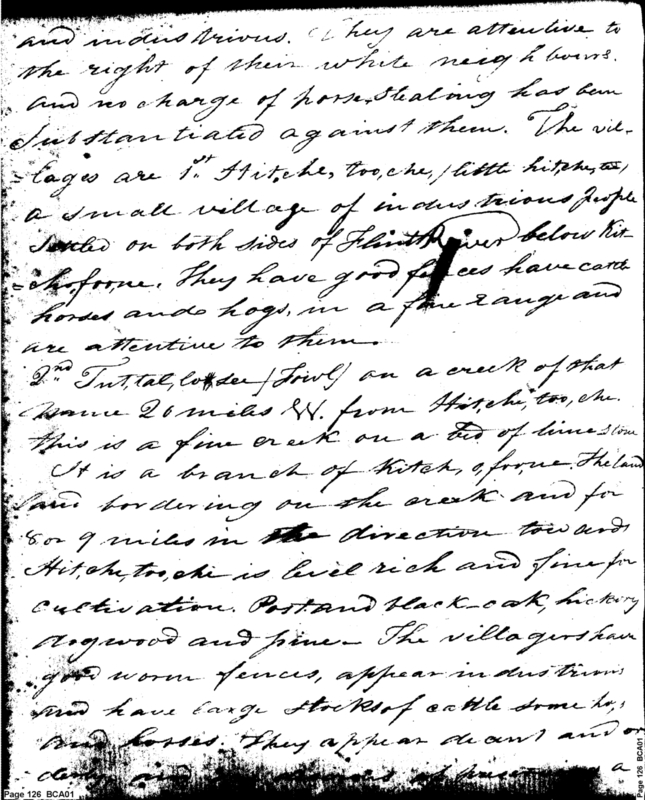 and industrious. They are attentive to
the right of their white neighbours.
and no charge of horse, stealing has been
substantiated against them. The vil-
-lages are 1st Hit,che, too,che, /little hit,che,tee/
a small village of industrious people
settled on both sides of Flint River below Kit-
-cho,foone. They have good fences have cattle
horses and hogs, in a fine range and
are attentive to them.
2nd Tut,tal,lo,see {Fowl} on a creek of that
name 20 miles W. from Hit,che,too,che.
this is a fine creek on a bed of lime stone
It is a branch of Kitch,o,foone. The land
land bordering on the creek and for
8 or 9 miles in the direction towards
Hit,che,too,che is level rich and fine for
cultivation. Post and black-oak, hickory
dogwood and pine - The villagers have
good worm fences, appear industrious
and have large stocks of cattle some hogs
and horses. They appear decent and or-
-derly and are desirous of preserving a
Page 126 BCA01
Page 126 BCA01